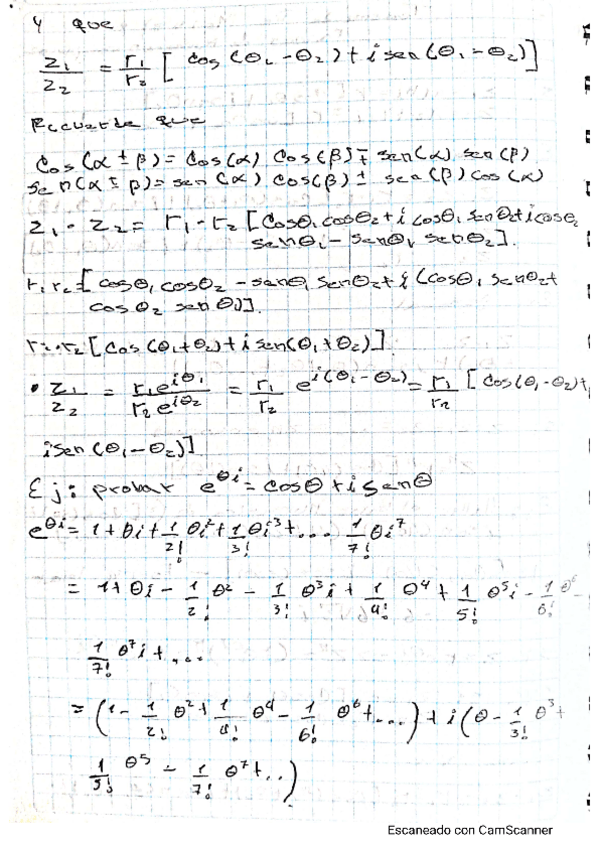 y que
z₁/z₂ = r₁/r₂ [ cos(θ₁ - θ₂) + i sen(θ₁ - θ₂)]
Recuerde que
Cos(α ± β) = Cos(α) Cos(β) ∓ sen(α) sen(β)
sen(α ± β) = sen(α) cos(β) ± sen(β) cos(α)
z₁ · z₂ = r₁ · r₂ [Cosθ₁ cosθ₂ + i cosθ₁ senθ₂ + i cosθ₂
senθ₁ - senθ₁ senθ₂].
r₁ r₂ = [cosθ₁ cosθ₂ - senθ₁ senθ₂ + i (cosθ₁ senθ₂ +
cosθ₂ senθ₁)].
r₂·r₂ [cos(θ₁+θ₂) + i sen(θ₁+θ₂)]
• z₁/z₂ = r₁e^{iθ₁}/r₂e^{iθ₂} = r₁/r₂ e^{i(θ₁-θ₂)} = r₁/r₂ [cos(θ₁-θ₂)+
i sen(θ₁-θ₂)]
Ej: probar e^{θi} = cosθ + i senθ
e^{θi} = 1 + θi + 1/2! θi² + 1/3! θi³ + ... 1/7! θi⁷
= 1 + θi - 1/2! θ² - 1/3! θ³i + 1/4! θ⁴ + 1/5! θ⁵i - 1/6! θ⁶ -
1/7! θ⁷i + ...
= (1 - 1/2! θ² + 1/4! θ⁴ - 1/6! θ⁶ + ...) + i(θ - 1/3! θ³ +
1/5! θ⁵ - 1/7! θ⁷ + ..)
Escaneado con CamScanner